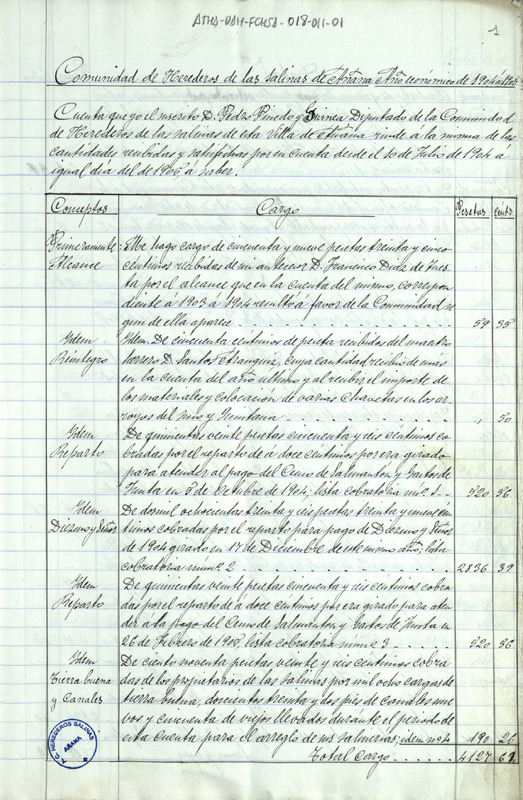 ATHA-DAH-FCHSA-018-011-01
1
Comunidad de Herederos de las Salinas de Añana Año económico de 1904 á 1905
Cuenta que yo el inscrito D. Pedro Pinedo y Guinea Diputado de la Comunidad
de Herederos de las salinas de esta Villa de Añana rinde á la misma de las
cantidades recibidas y satisfechas por su cuenta desde el 10 de Julio de 1904 a
igual día del de 1905 á saber.
Conceptos Cargo Pesetas Cénts
Primeramente Me hago cargo de cincuenta y nueve pesetas treinta y cinco
Alcance centimos recibidas de mi antecesor D. Francisco Diaz de Tues-
ta por el alcance que en la cuenta del mismo, correspon
diente a 1903 á 1904 resultó á favor de la Comunidad se
gun de ella aparece 59 35
Idem Idem. De cincuenta centimos de peseta recibidos del maestro
Reintegro herrero D. Santos cuya cantidad recibió de más
en la cuenta del año ultimo y al recibir el importe de
los materiales y colocacion de varias chavetas en los ar-
royos del rio y Fuentana " 50
Idem De quinientas veinte pesetas cincuenta y seis centimos co-
Reparto bradas por el reparto de á doce centimos por era girado
para atender al pago del Censo de Salmanton y Gastos de
Junta en 5 de Octubre de 1904; lista cobratoria num 1 520 56
Idem De dos mil ochocientas treinta y seis pesetas treinta y nueve cen
Diezmo y Señor timos cobradas por el reparto para pago de Diezmo y Señor
de 1904 girado en 17 de Diciembre de este mismo año; lista
cobratoria num 2 2836 39
Idem De quinientas veinte pesetas cincuenta y seis centimos cobra
Reparto das por el reparto de á doce centimos por era girado para aten
der á la pago del Censo de Salmanton y Gastos de Junta en
26 de Febrero de 1905, lista cobratoria num 3 520 56
Idem De ciento noventa pesetas veinte y seis centimos cobra
Tierra buena das de los propietarios de las Salinas por mil ocho cargas de
y Canales tierra buena; doscientos treinta y dos pies de canales nue
vos y cincuenta de viejos llevados durante el periodo de
esta cuenta para el arreglo de sus salmueras; idem nº 4 190 26
Total Cargo 4127 62
A.C. HEREDEROS SALINAS
AÑANA